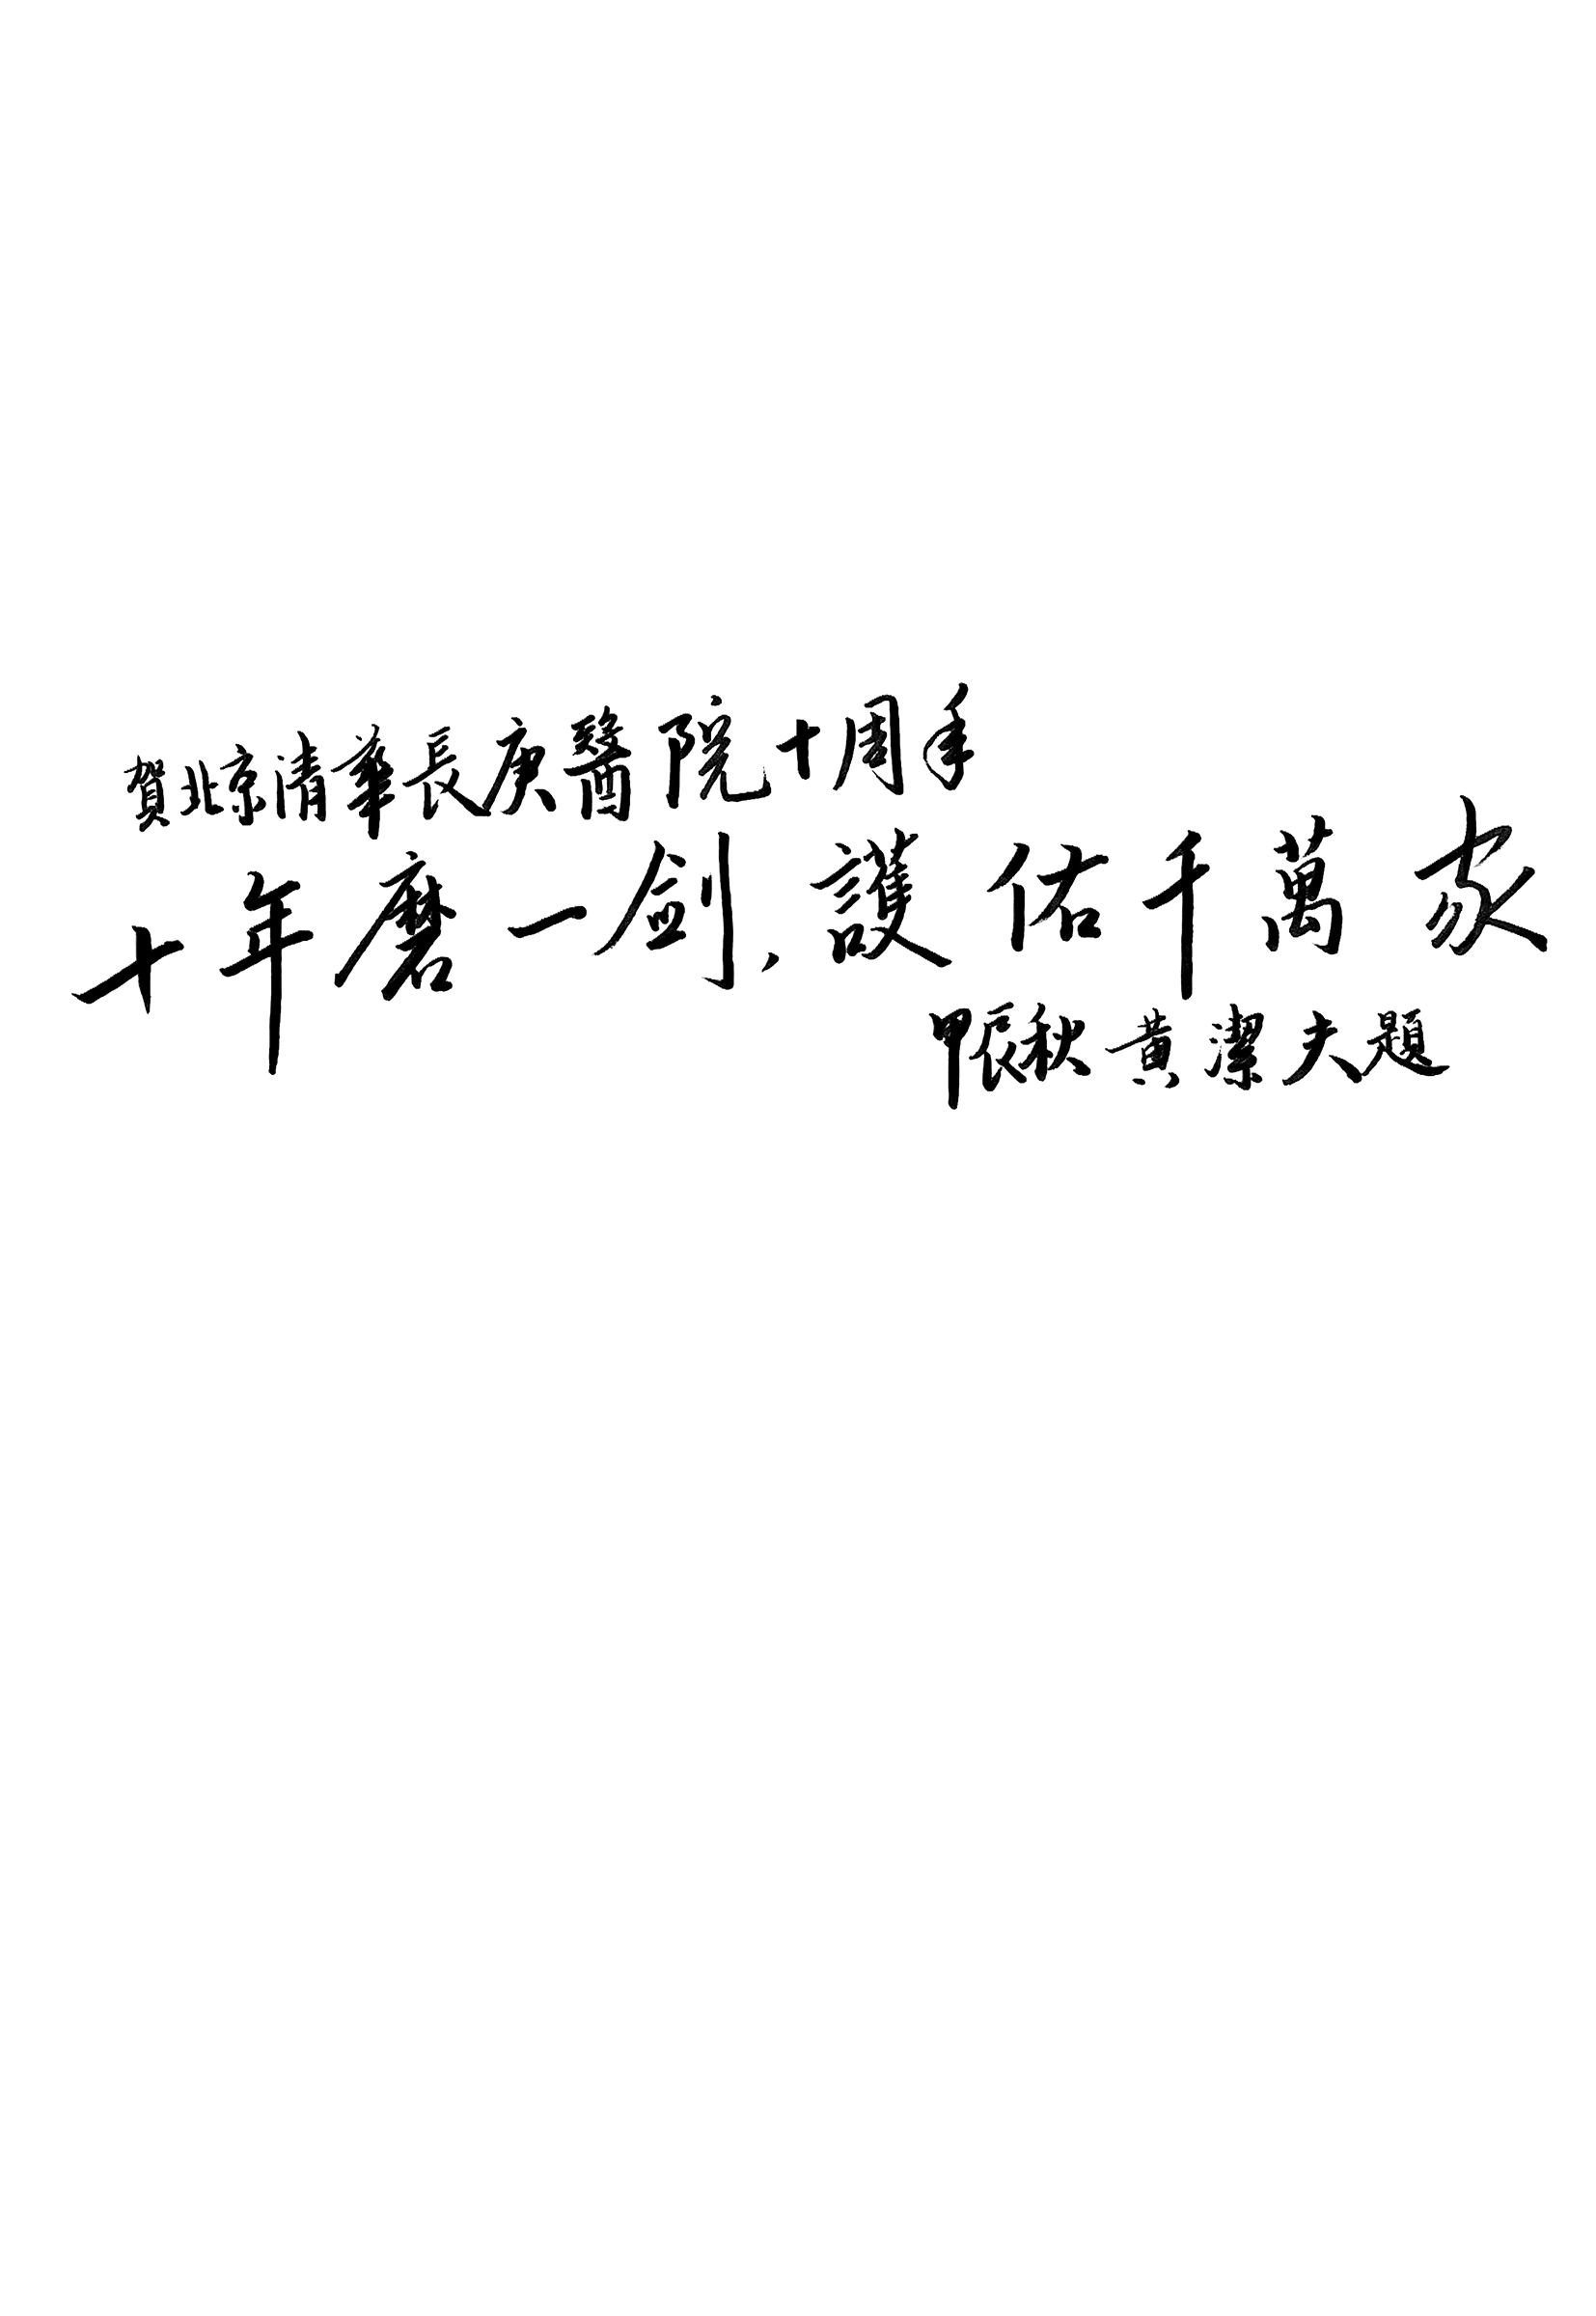 賀北京清華長庚醫院十周年
十年磨一劍,護佑千萬家
甲辰秋 黃潔夫題